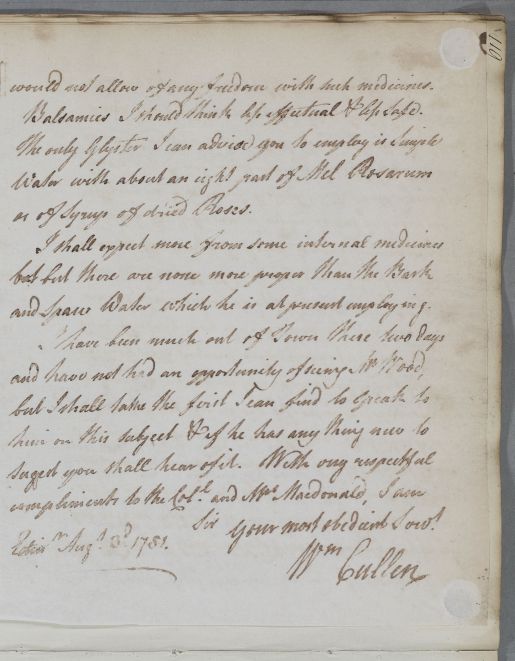 would not allow of any freedom with such medicines.
Balsamics I should think less effectual & less safe.
The only Glyster I can advise you to employ is Simple
Water with about an eight part of Mel Rosarum
or of Syrup of dried Roses.
I shall expect more from some internal medicines
but there are none more proper than the Bark
and Spaw Water which he is at present employing.
I have been much out of Town these two days
and have not had an opportunity of seeing Mr Wood,
but I shall take the first I can find to speak to
him on this subject & if he has any thing new to
sugest you shall hear of it. With my respectful
compliments to the Coll. and Mrs Macdonald, I am
Sir your most obedient Servt.
Edinr. Augt. 3d. 1781.
Wm Cullen